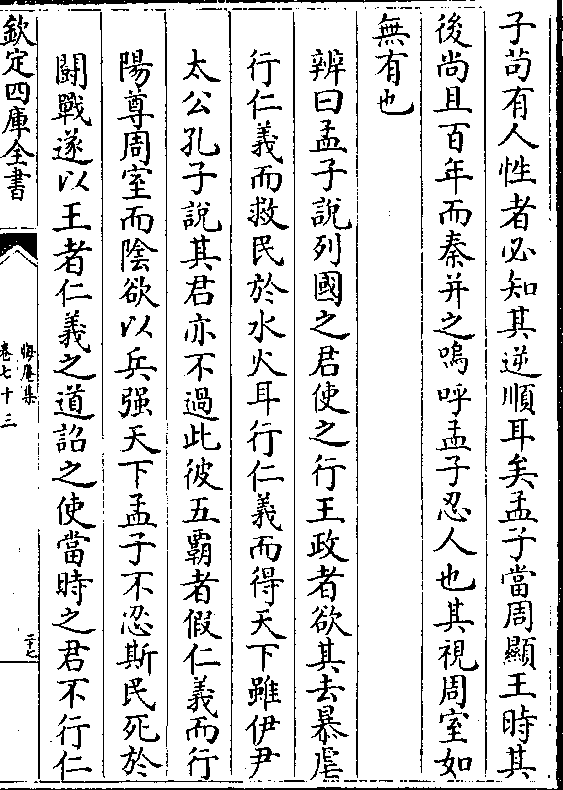 子苟有人性者必知其逆順耳矣孟子當周顯王時其
後尚且百年而秦并之嗚呼孟子忍人也其視周室如
無有也
辨曰孟子說列國之君使之行王政者欲其去暴虐
行仁義而救民於水火耳行仁義而得天下雖伊尹
太公孔子說其君亦不過此彼五霸者假仁義而行
陽尊周室而陰欲以兵强天下孟子不忍斯民死於
鬭戰遂以王者仁義之道詔之使當時之君不行仁
欽定四庫全書
晦庵集
卷七十三
三十七